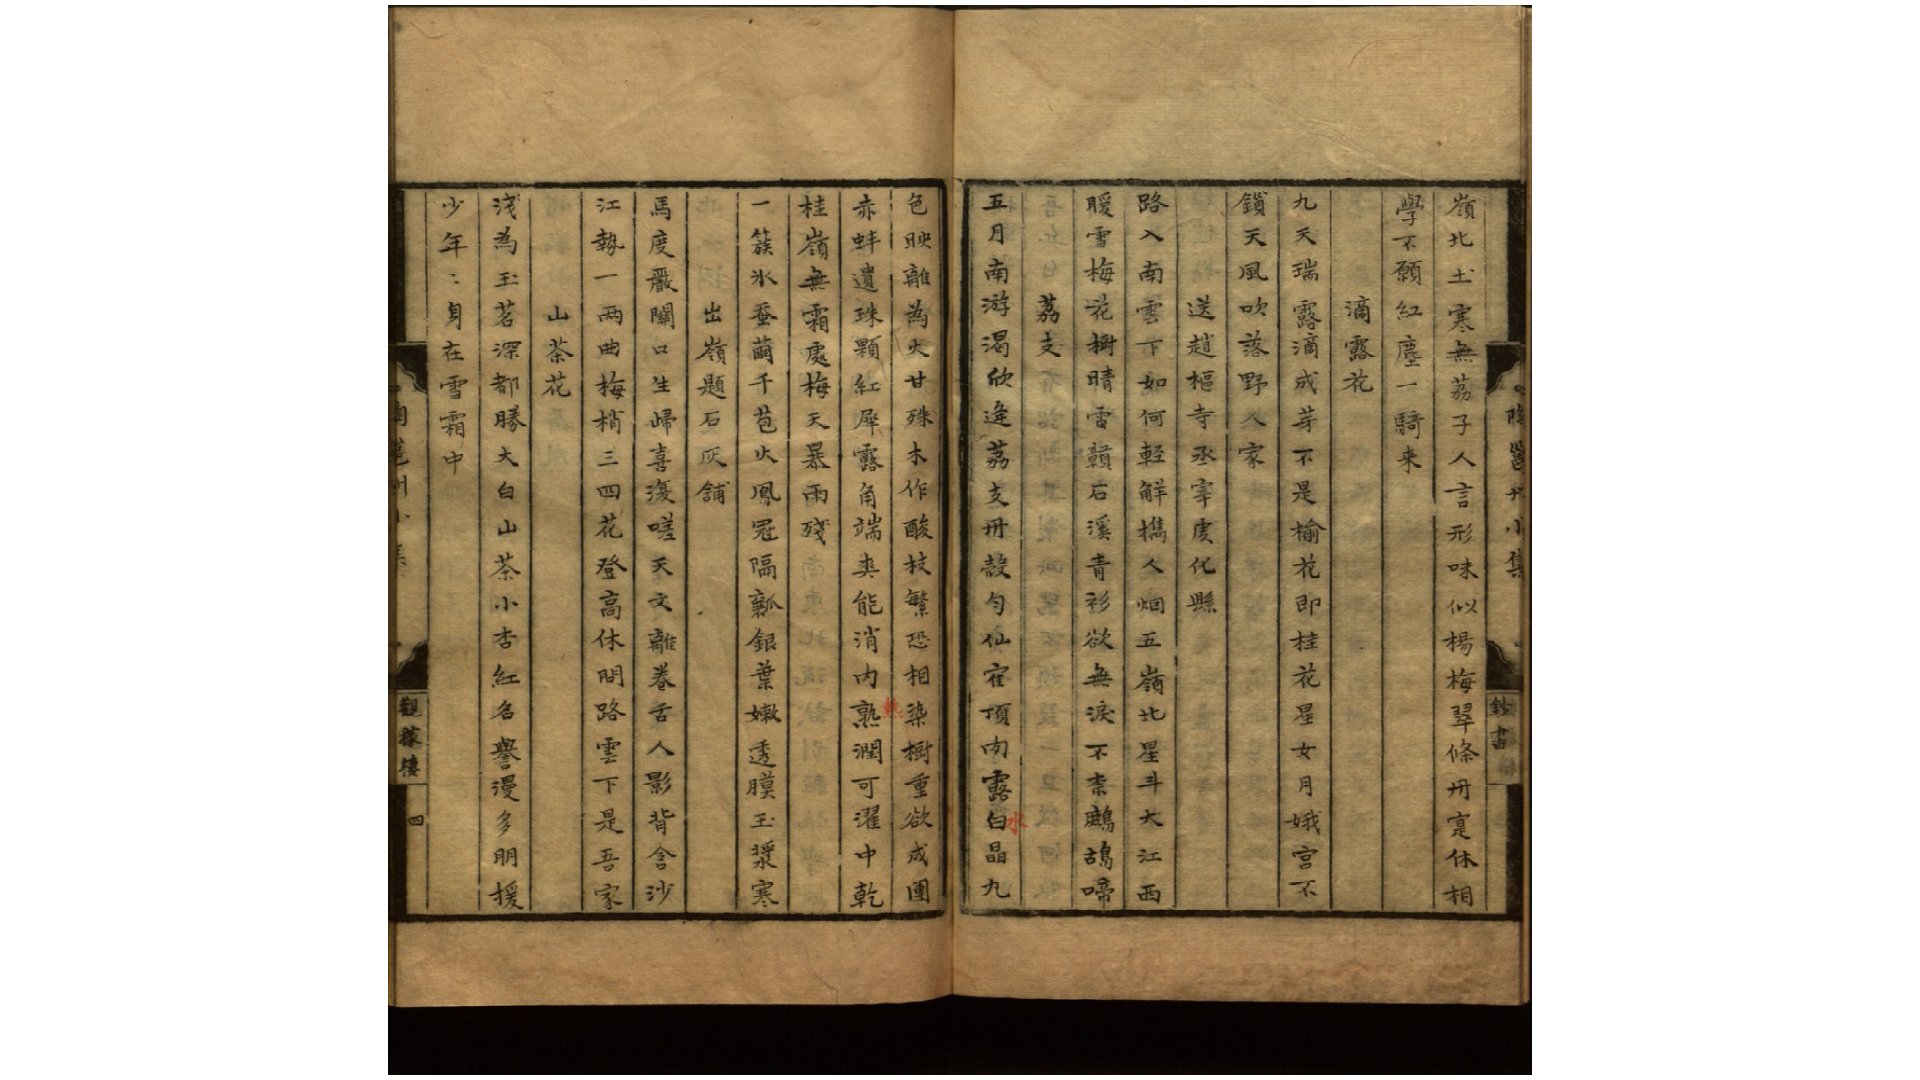 嶺北土寒無荔子人言形味似楊梅翠條丹寔休相
學不願紅塵一騎来
滴露花
九天瑞露滴成芽不是榆花即桂花星女月娥宮不
鎖天風吹落野人家
送趙樞寺丞宰虔化縣
路入南雲下如何輕解擕人烟五嶺北星斗大江西
暖雪梅花樹晴雷贑石溪青衫欲無淚不柰鷓鴣啼
荔支
五月南游渴欣逢荔支丹殼勻仙寉頂肉露白晶九
水
色映離為火甘殊木作酸枝繁恐相染樹重欲成團
赤蚌遺珠顆紅犀露角端爽能消内熟潤可濯中乾
熱
桂嶺無霜處梅天暴雨殘
一簇氷蚕繭千苞火鳳冠隔瓤銀葉嫩透膜玉漿寒
出嶺題石灰舖
馬度嚴關口生歸喜復嗟天文離卷舌人影背含沙
江勢一兩曲梅梢三四花登高休問路雲下是吾家
山茶花
淺為玉茗深都勝大白山茶小杏紅名譽漫多朋援
少年：身在雪霜中
觀稼樓
四
鈔書